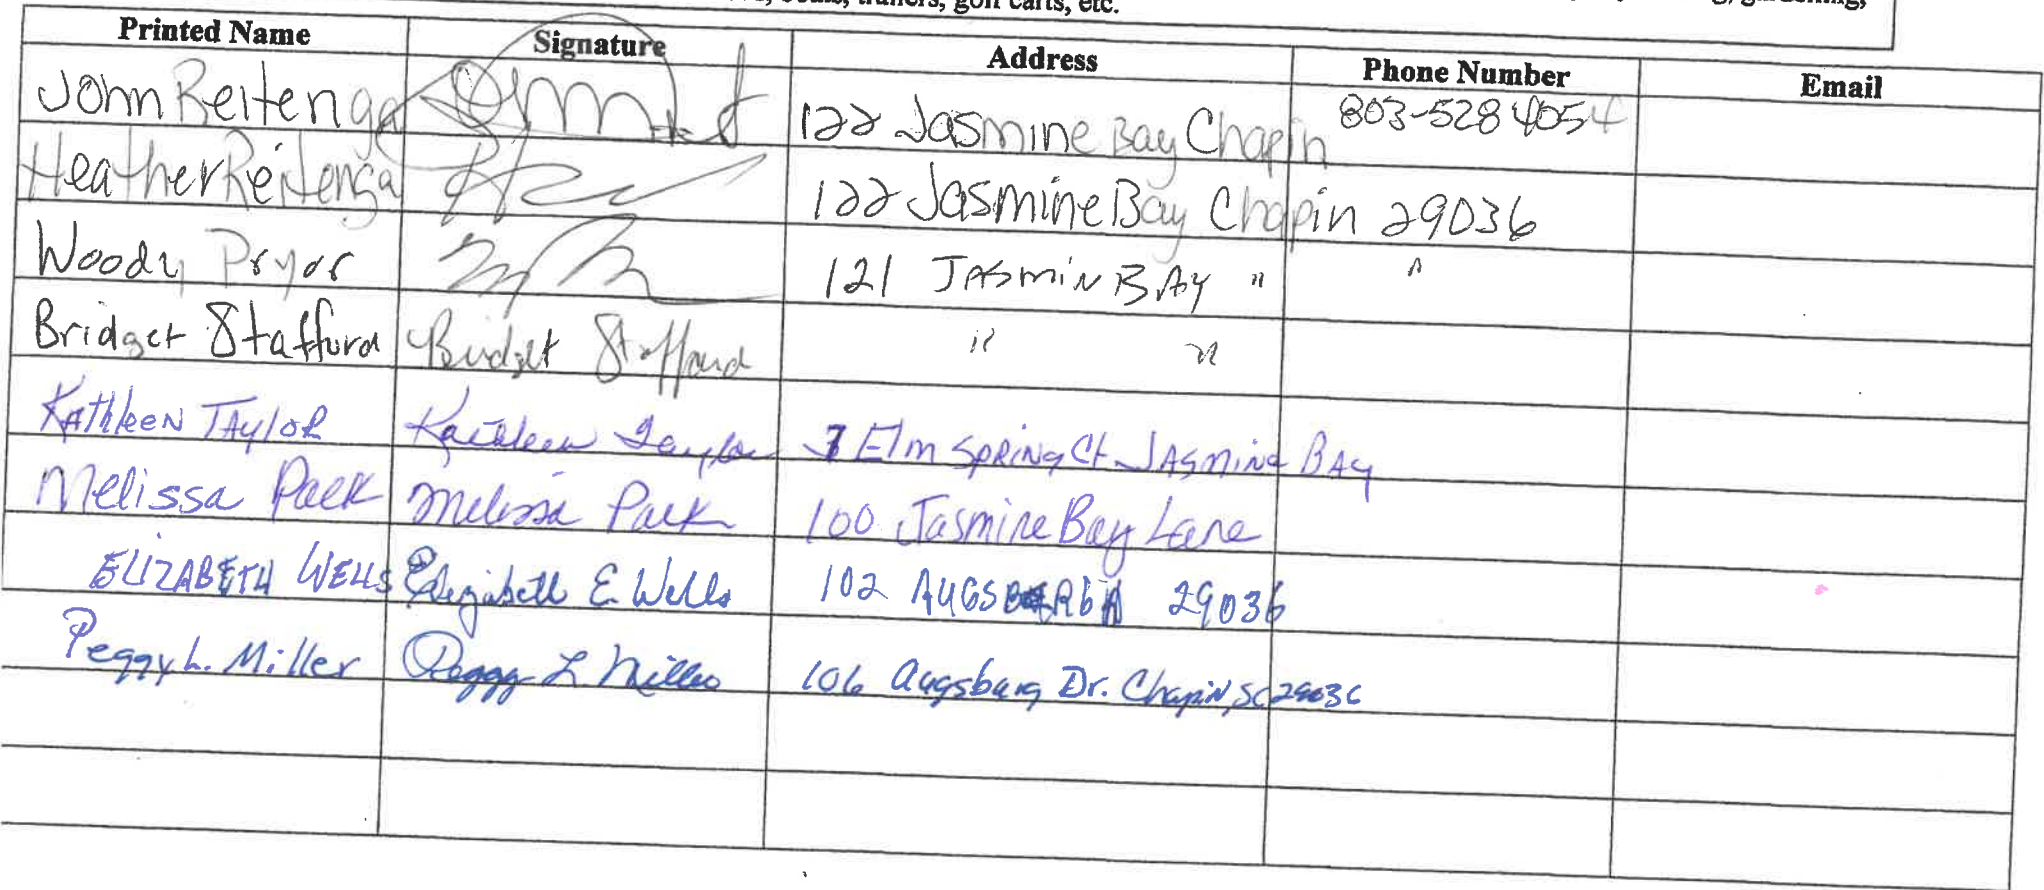 trailers, golf carts, etc.
Printed Name Signature Address Phone Number Email
John Reitenga 122 Jasmine Bay Chapin 803-528 4054
Heather Reitenga 122 Jasmine Bay Chapin 29036
Woody Pryor 121 JASMIN BAY " "
Bridget Stafford Bridget Stafford " "
Kathleen TAYLOR Kathleen Taylor 7 Elm SPRING Ct JASMINE BAY
Melissa Paek Melissa Paek 100 Jasmine Bay Lane
ELIZABETH WELLS Elizabeth E. Wells 102 29036
Peggy L. Miller Peggy L Miller 106 Augsburg Dr. Chapin, SC 29036